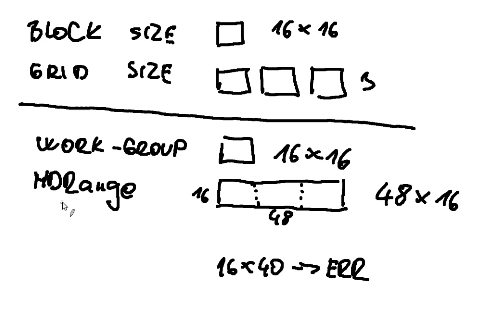 BLOCK SIZE 16×16
GRID SIZE 3
WORK-GROUP 16×16
NDRange 16 48 48×16
16×40 → ERR